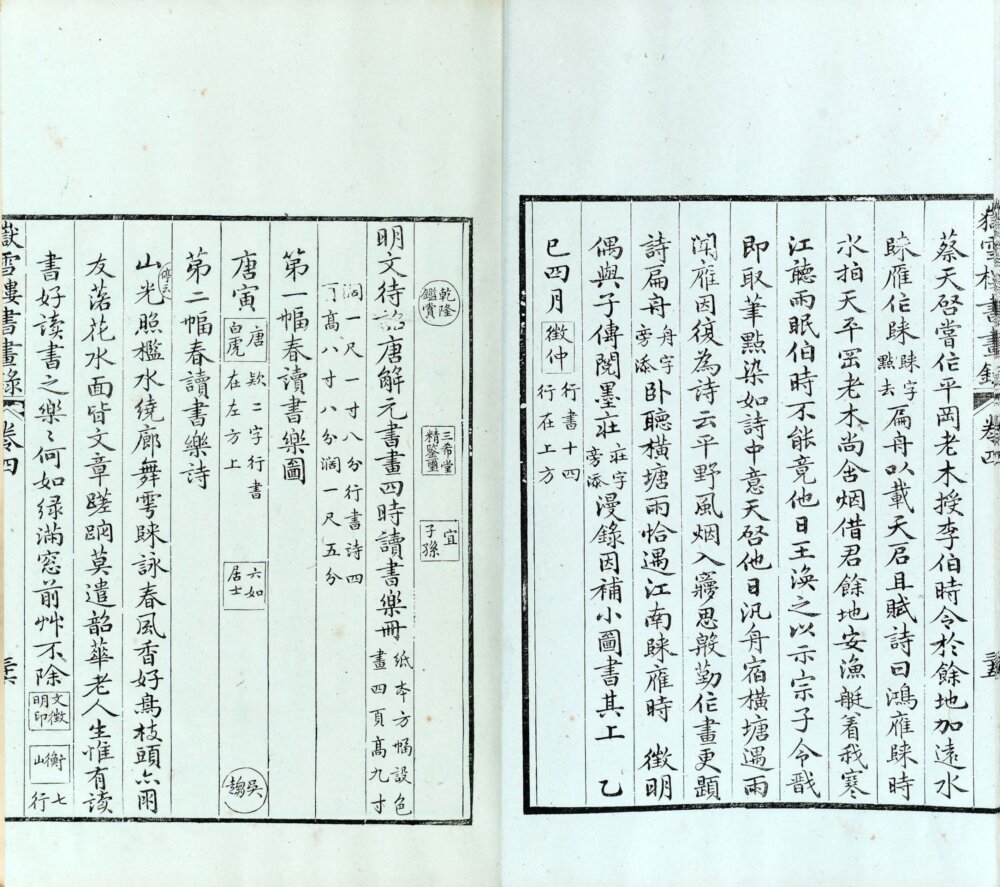 蔡天啓嘗作平岡老木授李伯時令於餘地加遠水
歸雁作歸歸字點去扁舟以載天启且賦詩曰鴻雁歸時
水拍天平岡老木尚含烟借君餘地安漁艇着我寒
江聽雨眠伯時不能竟他日王渙之以示宗子令戩
即取筆點染如詩中意天啓他日汎舟宿橫塘遇雨
聞雁因復為詩云平野風烟入夢思殷勤作畫更題
詩扁舟舟字旁添卧聽橫塘雨恰遇江南歸雁時 徵明
偶與子傳閱墨莊莊字旁添漫錄因補小圖書其上 乙
巳四月 徵仲 行書十四行在上方
嶽雪樓書畫錄 卷四 三五
乾隆鑑賞 三希堂精鑒璽 宜子孫
明文待詔唐解元書畫四時讀書樂冊 紙本方幅設色畫四頁高九寸
濶一尺一寸八分行書詩四頁高八寸八分濶一尺五分
第一幅春讀書樂圖
唐寅 唐白虎 款二字行書在左方上 六如居士 吳趨
第二幅春讀書樂詩
山光照檻水繞廊舞雩歸詠春風香好鳥枝頭亦朋
友落花水面皆文章蹉跎莫遣韶華老人生惟有讀
書好讀書之樂〻何如綠滿窓前艸不除 文徵明印 衡山 七行
嶽雪樓書畫錄 卷四 三六